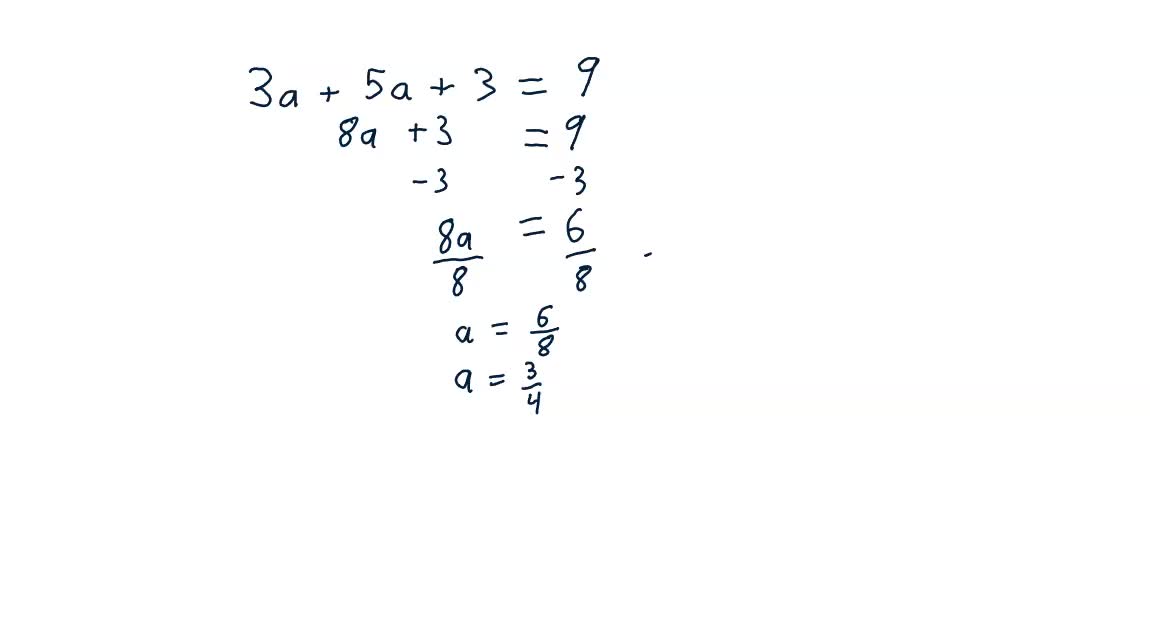 3a + 5a + 3 = 9
8a + 3 = 9
-3 -3
8a/8 = 6/8
a = 6/8
a = 3/4